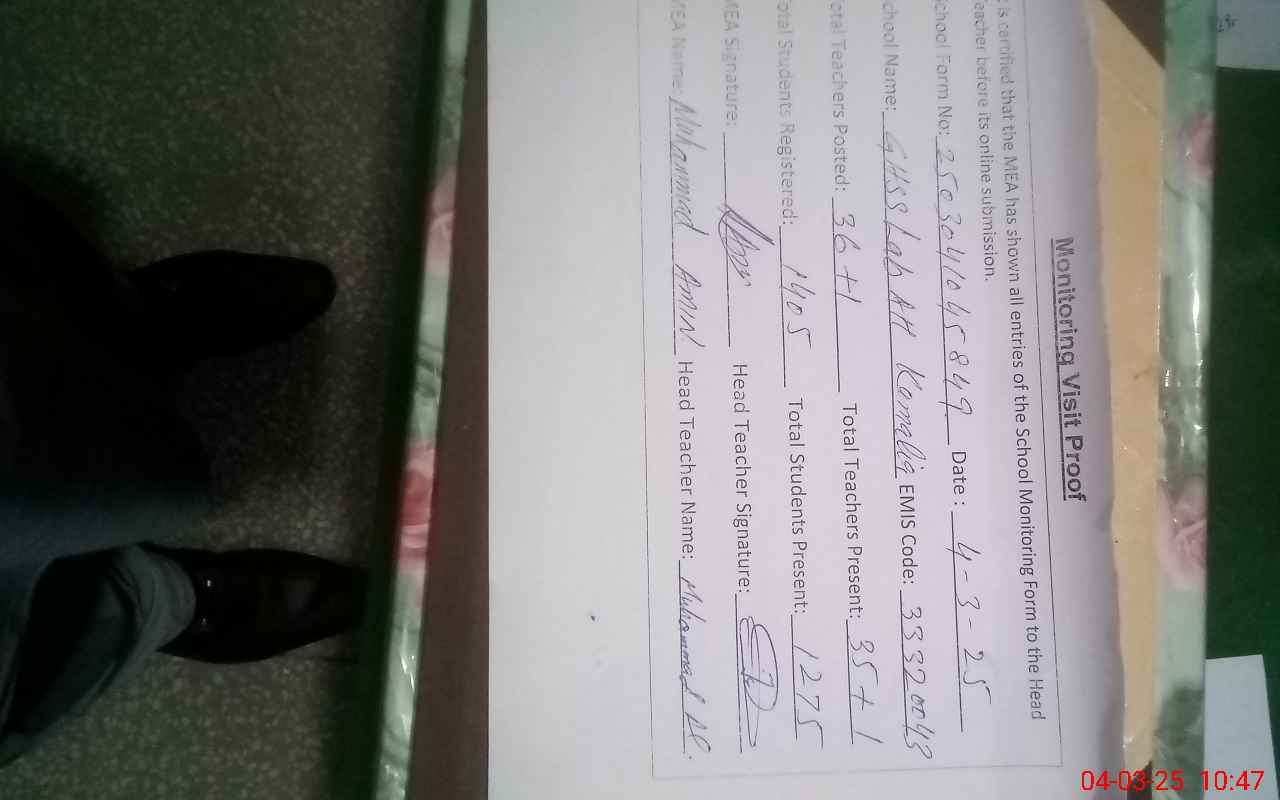 Monitoring Visit Proof
is certified that the MEA has shown all entries of the School Monitoring Form to the Head
eacher before its online submission.
chool Form No: 2503041045849 Date : 4-3-25
chool Name: GHSS Lab AH Kamalia EMIS Code: 33320043
otal Teachers Posted: 36+1 Total Teachers Present: 35+1
otal Students Registered: 1405 Total Students Present: 1275
MEA Signature: Head Teacher Signature:
MEA Name: Muhammad AMIN Head Teacher Name: Muhammad
04-03-25 10:47